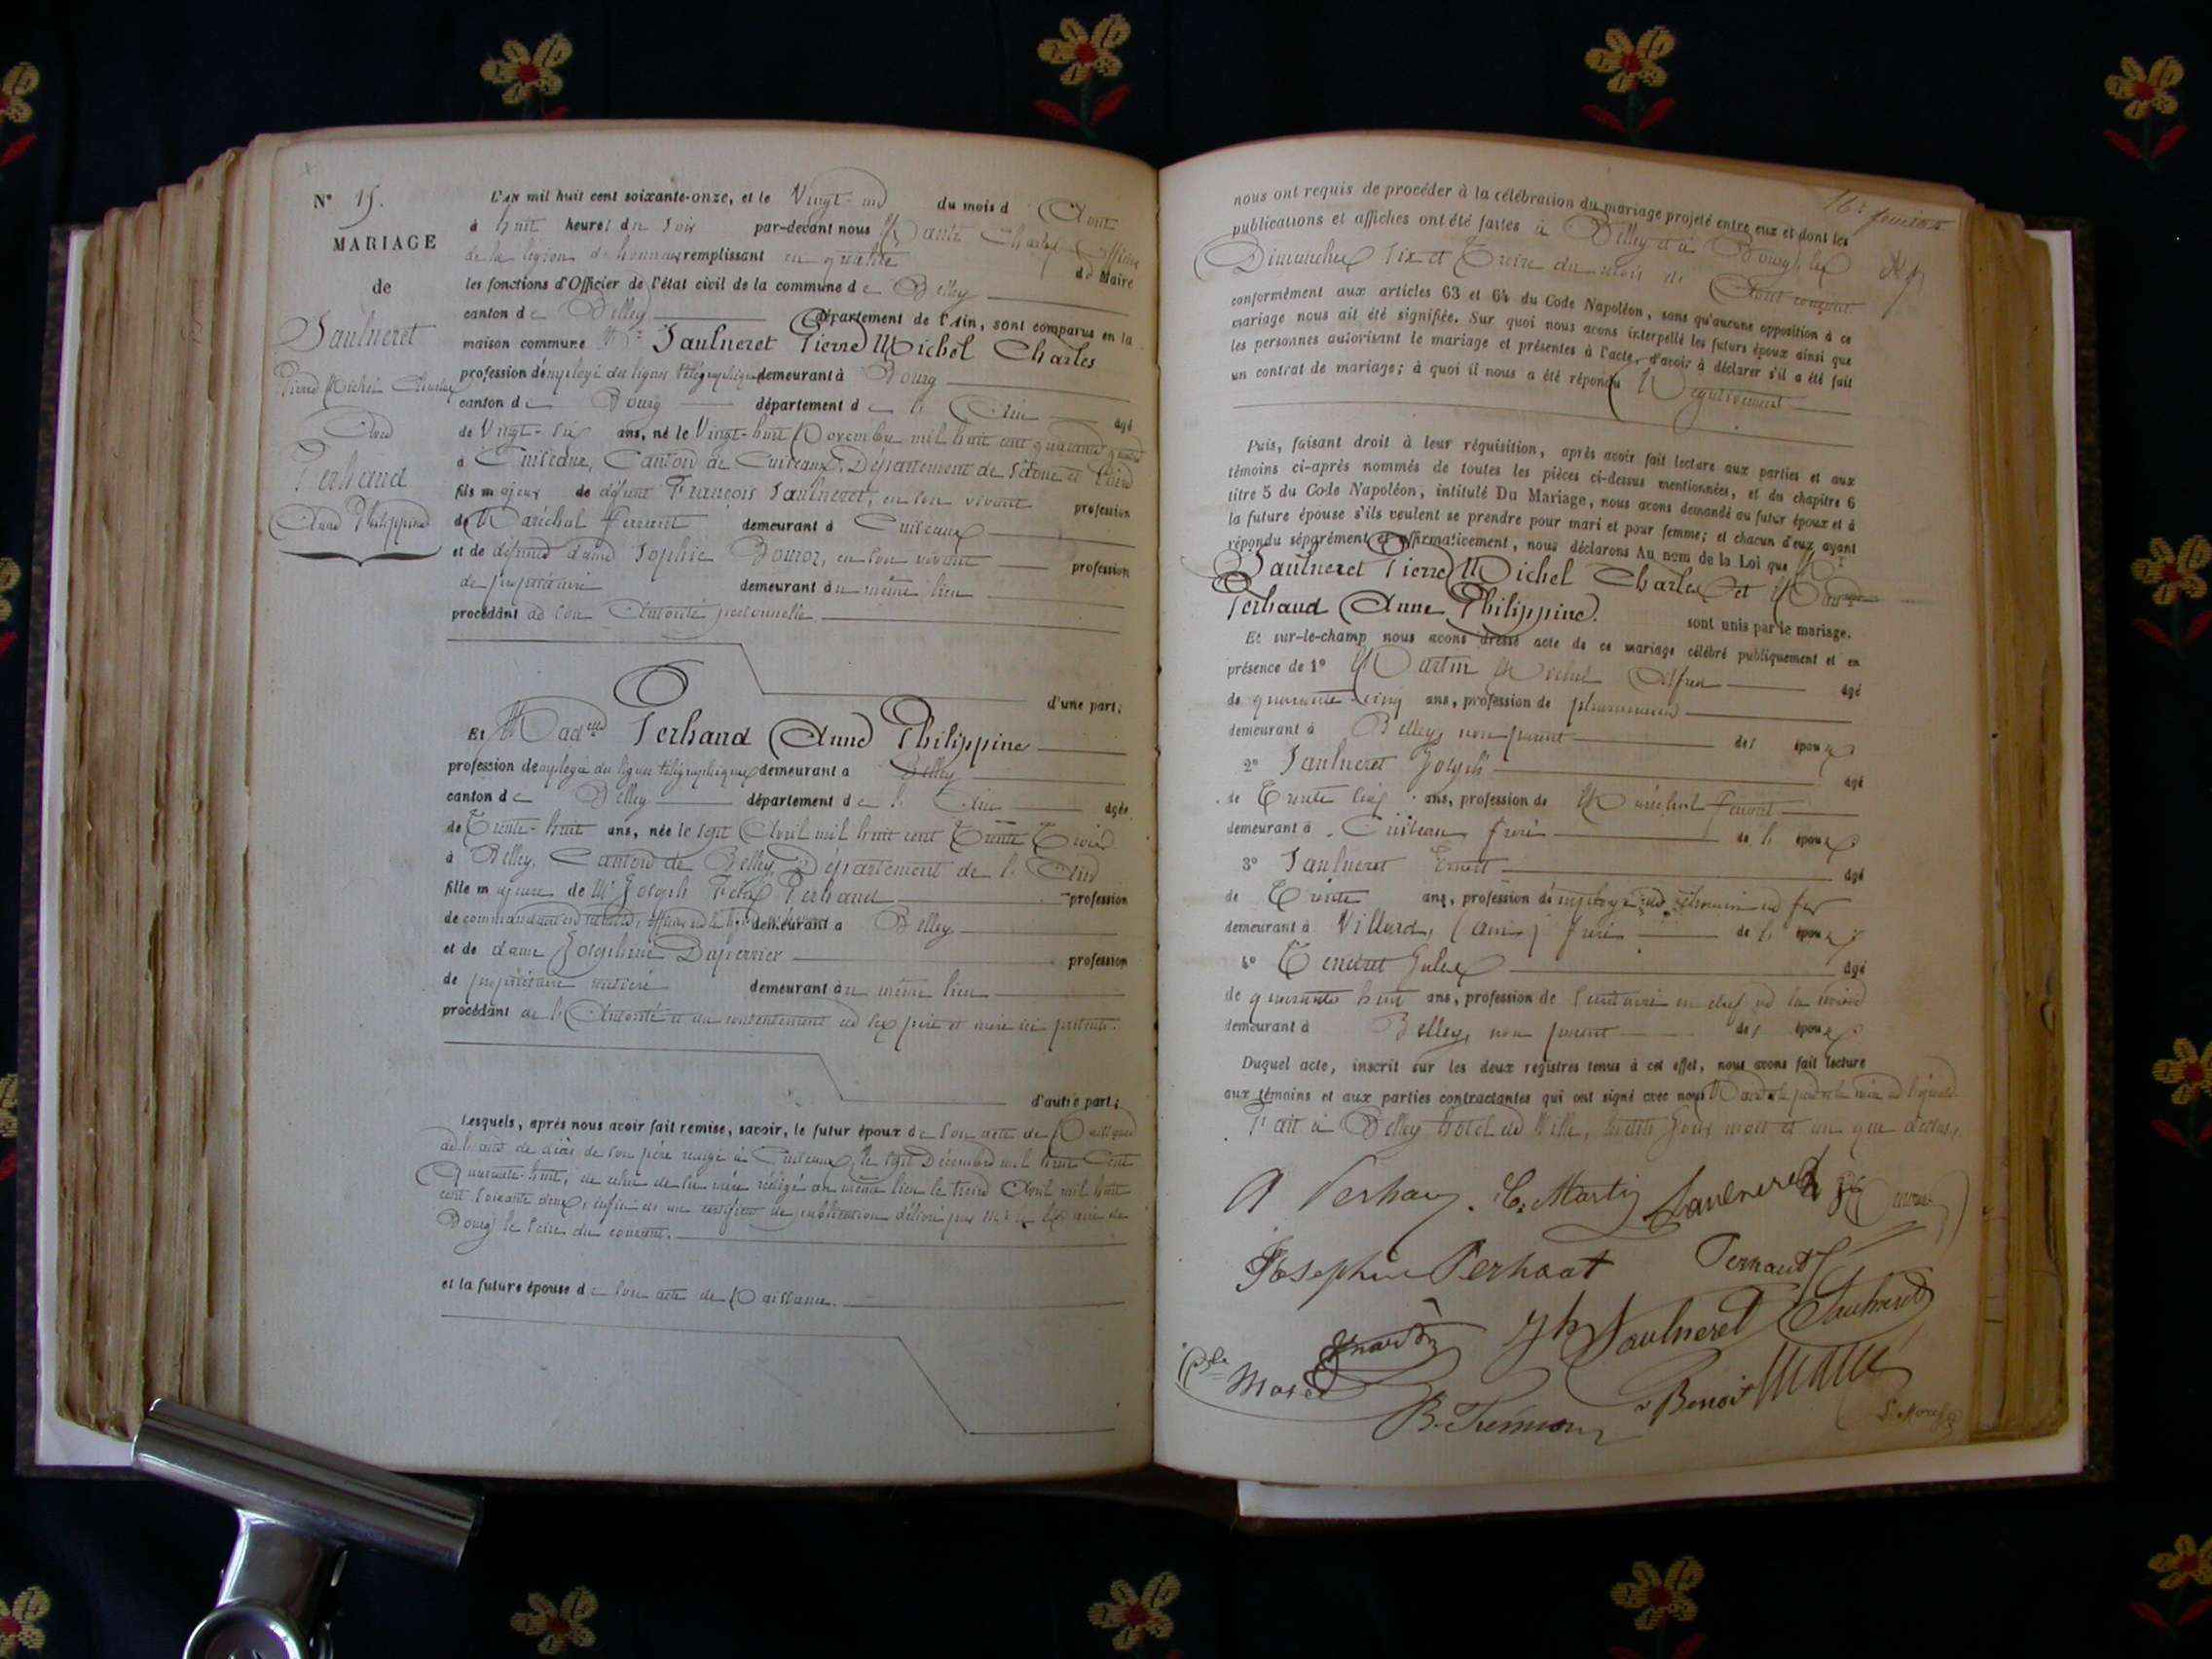 N° 15.
MARIAGE
de
Saulneret
Pierre Michel Charles
Avec
Perhaud
Anne Philippine
L'AN mil huit cent soixante-onze, et le Vingt-un du mois d Aout
à huit heures du soir par-devant nous Charles officier
de la légion d'honneur remplissant en qualité de Maire
les fonctions d'Officier de l'état civil de la commune de Belley
canton de Belley département de l'Ain, sont comparus en la
maison commune Mr Saulneret Pierre Michel Charles
profession d'employé des lignes télégraphiques demeurant à Bourg
canton de Bourg département de l'Ain âgé
de Vingt-six ans, né le Vingt-huit Novembre mil huit cent quarante quatre
à Cuiseaux, Canton de Cuiseaux, Département de Saône et Loire
fils majeur de défunt François Saulneret, en son vivant profession
de Maréchal ferrant demeurant à Cuiseaux
et de défunte dame Sophie en son vivant profession
de propriétaire demeurant au même lieu
procédant de son Autorité personnelle
d'une part;
Et Madelle Perhaud Anne Philippine
profession d'employée des lignes télégraphiques demeurant à Belley
canton de Belley département de l'Ain âgée
de Trente-huit ans, née le sept Avril mil huit cent Trente Trois
à Belley, Canton de Belley, Département de l'Ain
fille majeure de Mr Joseph Félix Perhaud profession
de commandant en retraite, officier de la légion d'honneur demeurant à Belley
et de dame Joséphine Duperrier profession
de propriétaire rentière demeurant au même lieu
procédant de l'Autorité et du consentement de ses père et mère ici présents.
d'autre part;
Lesquels, après nous avoir fait remise, savoir, le futur époux de son acte de Naissance
de l'acte de décès de son père rédigé à Cuiseaux, le sept Décembre mil huit Cent
Quarante-huit, de celui de sa mère rédigé au même lieu le treize Avril mil huit
cent soixante deux, enfin de un certificat de publication délivré par Mr le Maire de
Bourg le seize du courant.
et la future épouse de son acte de Naissance.
16e feuillet
nous ont requis de procéder à la célébration du mariage projeté entre eux et dont les
publications et affiches ont été faites à Belley et à Bourg les
Dimanches Six et Treize du mois de Aout courant
conformément aux articles 63 et 64 du Code Napoléon, sans qu'aucune opposition à ce
mariage nous ait été signifiée. Sur quoi nous avons interpellé les futurs époux ainsi que
les personnes autorisant le mariage et présentes à l'acte, d'avoir à déclarer s'il a été fait
un contrat de mariage; à quoi il nous a été répondu Négativement
Puis, faisant droit à leur réquisition, après avoir fait lecture aux parties et aux
témoins ci-après nommés de toutes les pièces ci-dessus mentionnées, et du chapitre 6
titre 5 du Code Napoléon, intitulé Du Mariage, nous avons demandé au futur époux et à
la future épouse s'ils veulent se prendre pour mari et pour femme; et chacun d'eux ayant
répondu séparément et affirmativement, nous déclarons Au nom de la Loi que Mr
Saulneret Pierre Michel Charles et Madelle
Perhaud Anne Philippine. sont unis par le mariage.
Et sur-le-champ nous avons dressé acte de ce mariage célébré publiquement et en
présence de 1° Martin Michel Alfred âgé
de quarante-cinq ans, profession de pharmacien
demeurant à Belley, non parent des époux
2° Saulneret Joseph âgé
de Trente six ans, profession de Maréchal ferrant
demeurant à Cuiseaux frère de l'époux
3° Saulneret Ernest âgé
de Trente ans, profession d'employé de chemin de fer
demeurant à Villars, (ain) frère de l'époux
4° Tendret Jules âgé
de quarante huit ans, profession de Secrétaire en chef de la mairie
demeurant à Belley, non parent des époux
Duquel acte, inscrit sur les deux registres tenus à cet effet, nous avons fait lecture
aux témoins et aux parties contractantes qui ont signé avec nous
Fait à Belley hôtel de Ville, lesdits Jour mois et an que dessus.
A Perhaud. C. Martin Saulneret
Josephine Perhaat Pernaud
Jh Saulneret Saulneret
Morel
Benoit